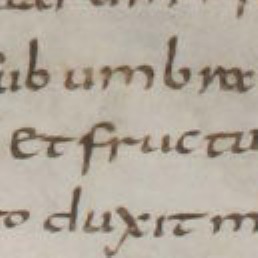 ub umbra
et fructu
to duxit m